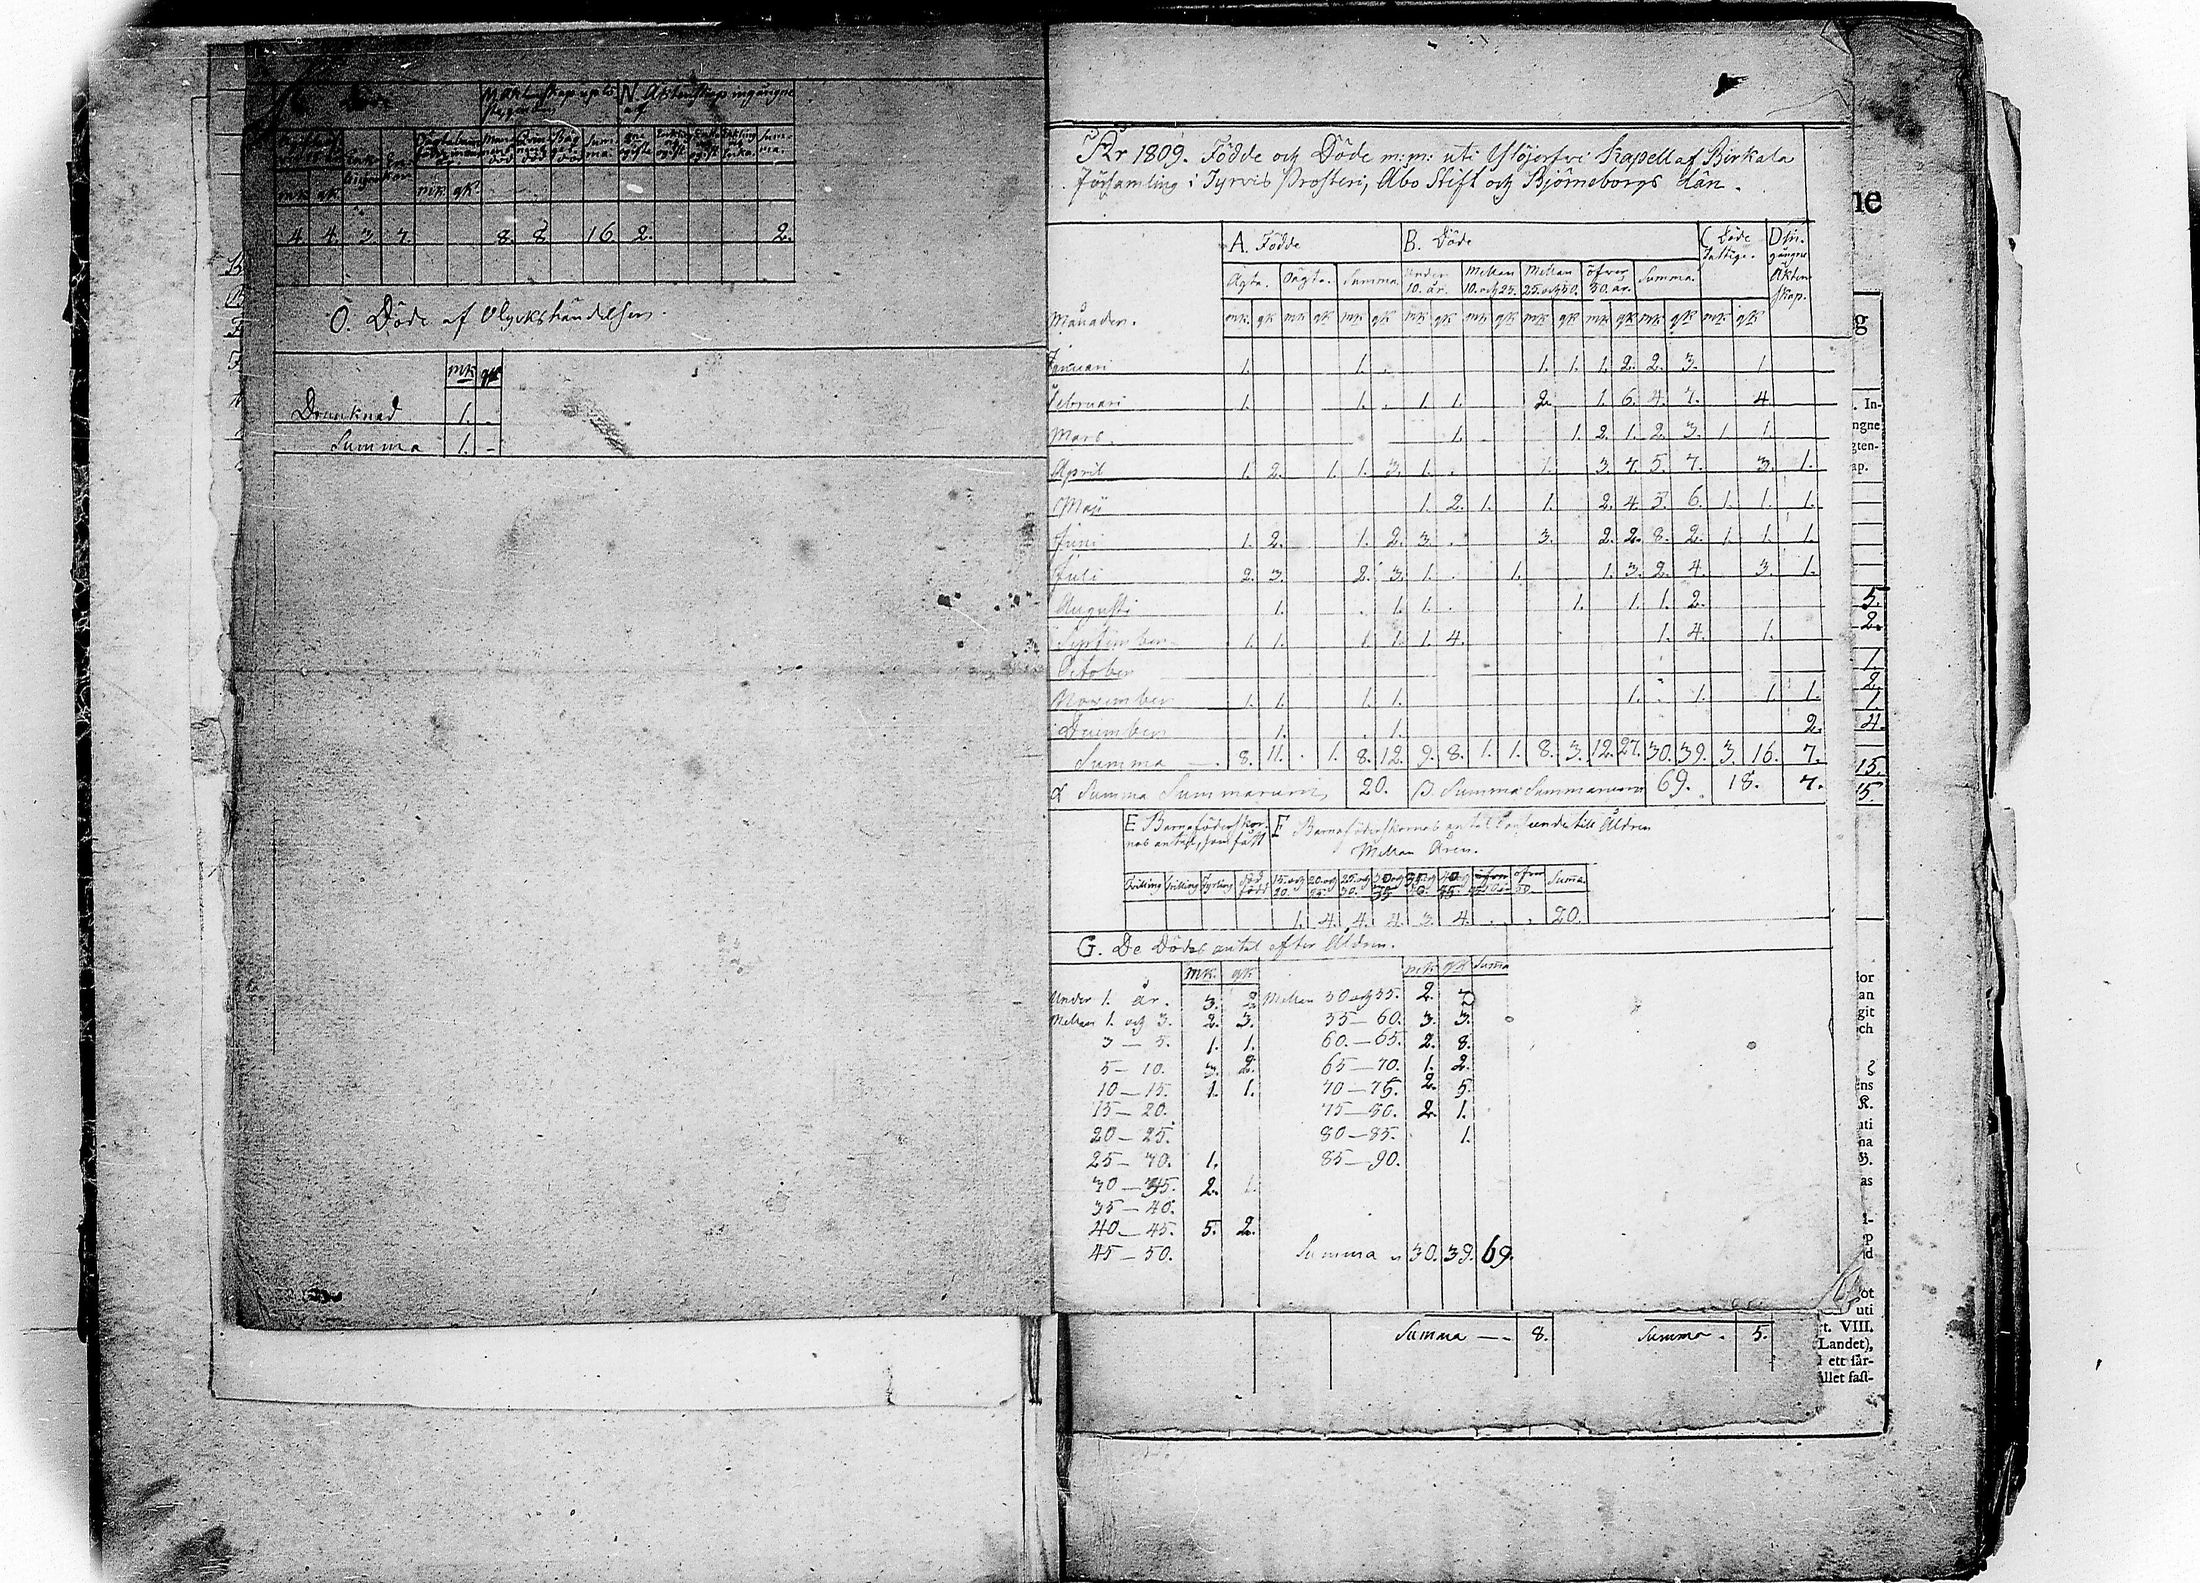 M. Äktenskap uplöste N. Äktenskap ingångne
mk. qk. mk qk.
4. 4. 3. 7. 8. 8. 16. 2. 2.
O. Döde af Olyckshändelser.
mk qk
Drunknad 1. -
Summa 1. -
År 1809. Födde och Döde m:m: uti Ylöjerfvi Kapell af Birkala
Församling i Tyrvis Prosteri, Åbo Stift och Björneborgs Län.
A. Födde B. Döde C. Döde fattige. D. Ingångne Äktenskap.
Ägta. Oägta. Summa. Under 10. år. Mellan 10. och 25. Mellan 25. och 50. öfver 50. år. Summa.
Månader. mk. qk mk qk mk qk mk qk mk qk mk qk mk qk mk qk mk qk
Januari 1. 1. . 1. 1. 1. 2. 2. 3. 1.
Februari 1. 1. . 1. 1. 2. 1. 6. 4. 7. 4.
Mars. 1. 1. 2. 1. 2. 3. 1. 1.
April 1. 2. 1. 1. 3. 1. . 1. 3. 7. 5. 7. 3. 1.
Maji 1. 2. 1. 1. 2. 4. 5. 6. 1. 1. 1.
Juni 1. 2. 1. 2. 3. . 3. 2. 2. 8. 2. 1. 1. 1.
Juli 2. 3. 2. 3. 1. . 1. 1. 3. 2. 4. 3. 1.
Augusti 1. . 1. 1. . 1. 1. 1. 2.
September 1. 1. 1. 1. 1. 4. 1. 4. 1.
October
November 1. 1. 1. 1. 1. . 1. 1. 1.
December 1. . 1. 2.
Summa — . 8. 11. . 1. 8. 12. 9. 8. 1. 1. 8. 3. 12. 27. 30. 39. 3. 15. 7.
Summa Summarum, 20. B. Summa Summarum 69. 18. 7.
E Barnaföderskornas antal, som fått F Barnaföderskornas antal i anseende till Åldren
Mellan Åren.
Tvilling Trilling Fyrling död född 15. och 20. 20. och 25. 25. och 30. 30 och 35 35. och 40. 40 och 45. öfver 50. Summa
1. 4. 4. 4. 3. 4. . . 20.
G. De Dödas antal efter Åldren.
mk. qk mk qk Summa
Under 1. år. 3. 2. Mellan 50 och 55. 2. 7
Mellan 1. och 3. 2. 3. 55 — 60. 3. 3.
3 — 5. 1. 1. 60. — 65. 2. 8.
5 — 10. 3. 2. 65 — 70. 1. 2.
10 — 15. 1. 1. 70 — 75. 2. 5.
15 — 20. 75 — 80. 2. 1.
20 — 25. 80 — 85. 1.
25 — 30. 1. 85 — 90.
30 — 35. 2. 1.
35 — 40.
40 — 45. 5. 2.
45 — 50. Summa 30. 39. 69.
Summa — 8. Summa . 5.
ne
g
. In-
ngne
gten-
ap.
5.
2.
1.
2.
1.
4.
15.
15.
lor
an
git
ch
ens
K.
uti
na
as
ot
uti
t. VIII.
Landet),
i ett fär-
ållet fast-